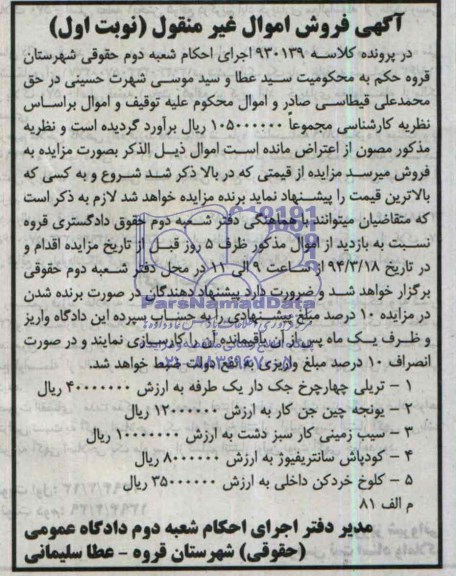 آگهی فروش اموال غیر منقول (نوبت اول)
در پرونده کلاسه ۹۳۰۱۳۹ اجرای احکام شعبه دوم حقوقی شهرستان
قروه حکم به محکومیت سید عطا و سید موسی شهرت حسینی در حق
محمدعلی قیطاسی صادر و اموال محکوم علیه توقیف و اموال براساس
نظریه کارشناسی مجموعاً ۱۰۵۰۰۰۰۰۰ ریال برآورد گردیده است و نظریه
مذکور مصون از اعتراض مانده است اموال ذیل الذکر بصورت مزایده به
فروش میرسد مزایده از قیمتی که در بالا ذکر شد شروع و به کسی که
بالاترین قیمت را پیشنهاد نماید برنده مزایده خواهد شد لازم به ذکر است
که متقاضیان میتوانند با هماهنگی دفتر شعبه دوم حقوق دادگستری قروه
نسبت به بازدید از اموال مذکور ظرف ۵ روز قبل از تاریخ مزایده اقدام و
در تاریخ ۹۴/۳/۱۸ از ساعت ۹ الی ۱۱ در محل دفتر شعبه دوم حقوقی
برگزار خواهد شد و ضرورت دارد پیشنهاد دهندگان در صورت برنده شدن
در مزایده ۱۰ درصد مبلغ پیشنهادی را به حساب سپرده این دادگاه واریز
و ظرف یک ماه پس از آن باقیمانده آن را کارسازی نمایند و در صورت
انصراف ۱۰ درصد مبلغ واریزی به نفع دولت ضبط خواهد شد.
۱ – تریلی چهارچرخ جک دار یک طرفه به ارزش ۴۰۰۰۰۰۰۰ ریال
۲ – یونجه چین جن کار به ارزش ۱۲۰۰۰۰۰۰ ریال
۳ – سیب زمینی کار سبز دشت به ارزش ۱۰۰۰۰۰۰۰ ریال
۴ – کودپاش سانتریفیوژ به ارزش ۸۰۰۰۰۰۰ ریال
۵ – کلوخ خردکن داخلی به ارزش ۳۵۰۰۰۰۰۰ ریال
م الف ۸۱
مدیر دفتر اجرای احکام شعبه دوم دادگاه عمومی
(حقوقی) شهرستان قروه – عطا سلیمانی
ParsNamadData